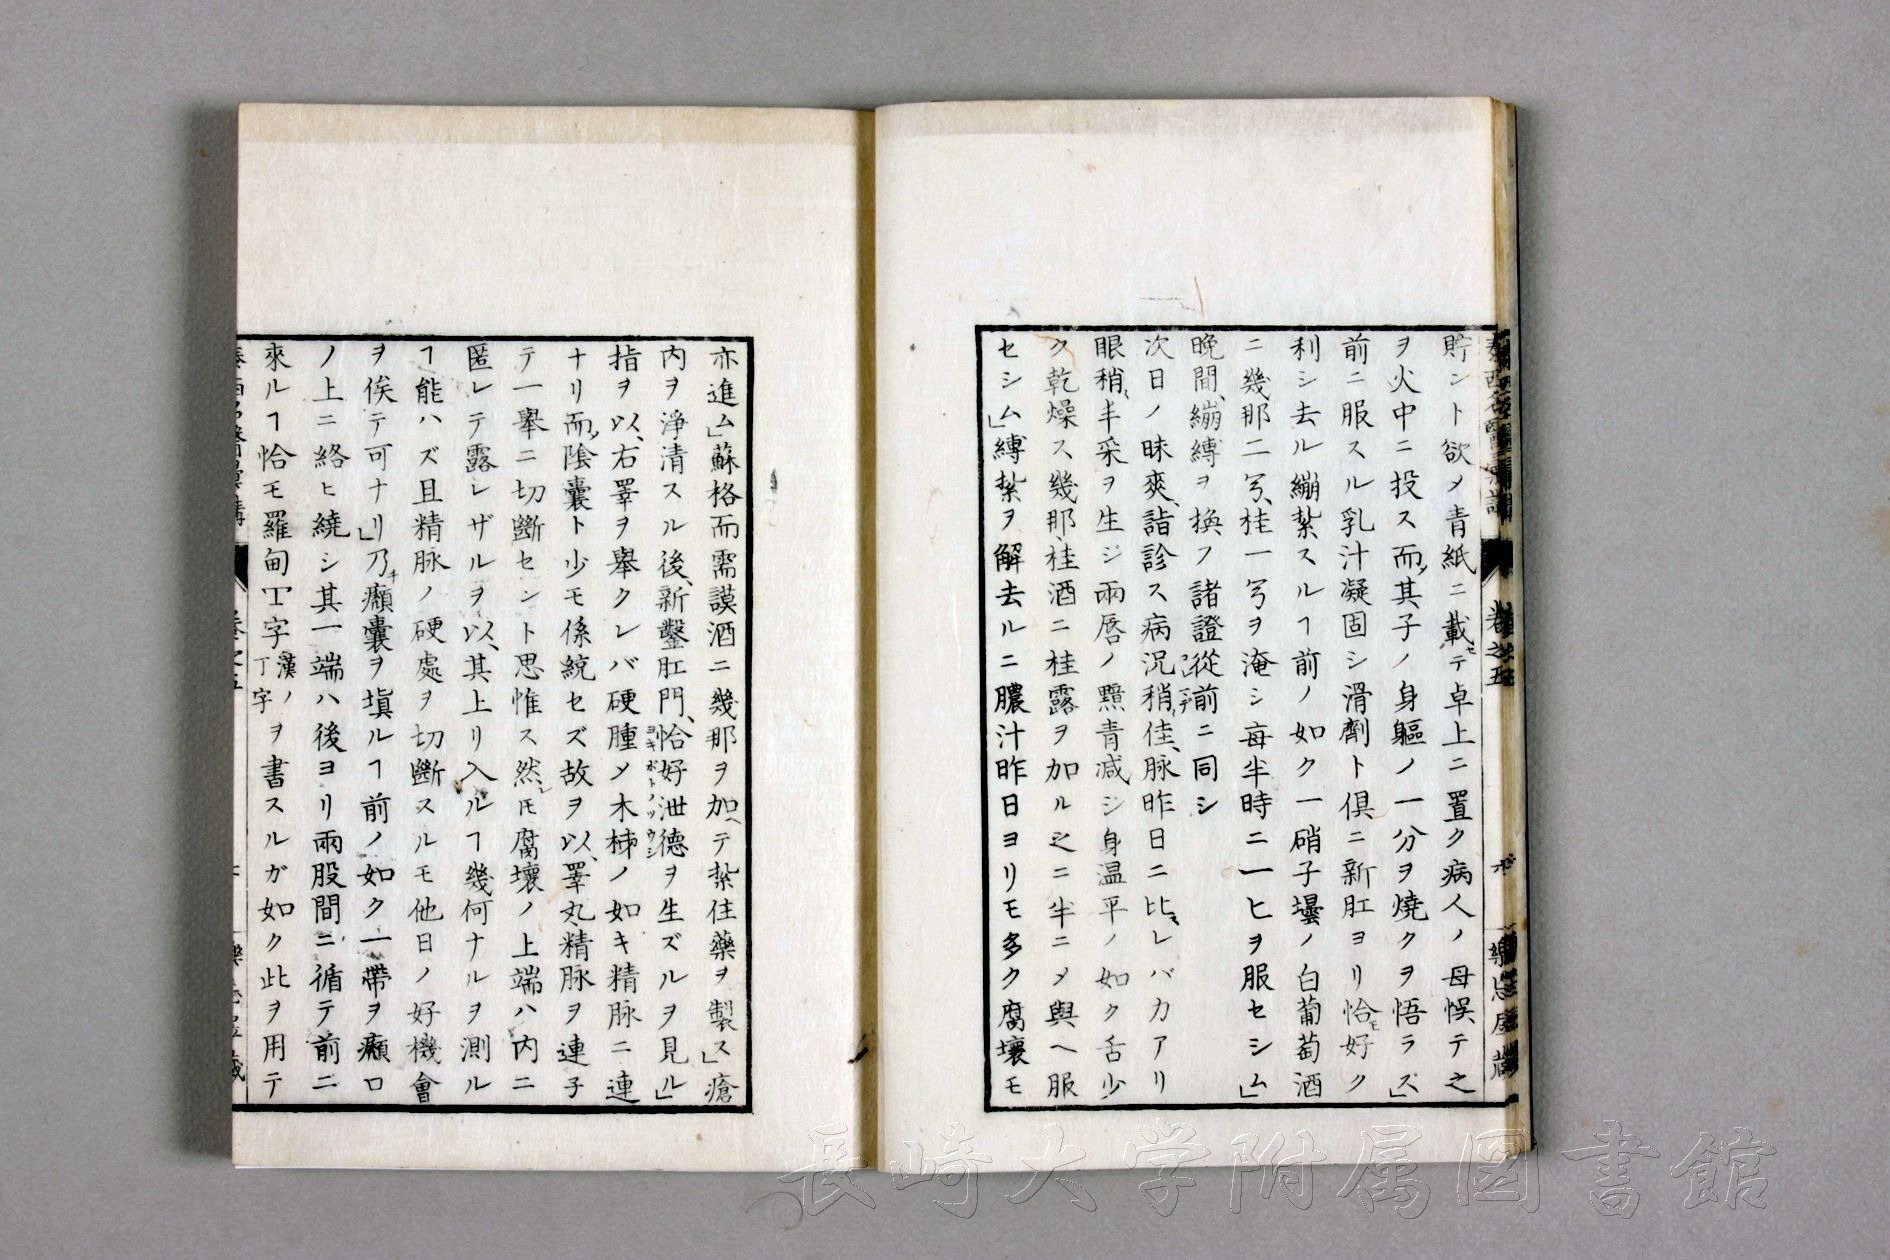 貯ント欲メ青紙ニ載セテ卓上ニ置ク病人ノ母悞テ之
ヲ火中ニ投ス而メ其子ノ身軀ノ一分ヲ燒クヲ悟ラス」
前ニ服スル乳汁凝固シ滑劑ト俱ニ新肛ヨリ恰モ好ク
利シ去ル繃紮スルヿ前ノ如ク一硝子壜ノ白葡萄酒
ニ幾那二
桂一
ヲ淹シ每半時ニ一ヒヲ服セシム」
晩間、繃縛ヲ換フ諸證從前ニ同シ
次日ノ昧爽、詣診ス病況稍佳、脉昨日ニ比スレバカアリ
眼稍半采ヲ生ジ兩唇ノ黯靑減シ身温平ノ如ク舌少
ク乾燥ス幾那桂酒ニ桂露ヲ加ル之ニ半ニメ與ヘ服
セシム」縛紮ヲ解去ルニ膿汁昨日ヨリモ多ク腐壞モ
亦進ム」蘇格而需謨酒ニ幾那ヲ加ヘテ紮住藥ヲ製ス」瘡
內ヲ淨清スル後、新鑿肛門、恰好泄德ヲ生ズルヲ見ル」
指ヲ以、右睪ヲ擧クレバ硬腫メ木梯ノ如キ精脉ニ連
ナリ而メ陰囊ト少モ係綂セズ故ヲ以、睪丸精脉ヲ連子
テ一擧ニ切斷セント思惟ス然シ𪜈腐壞ノ上端ハ內ニ
匿レテ露レザルヲ以、其上リ入ルヿ幾何ナルヲ測ル
ヿ能ハズ且精脉ノ硬處ヲ切斷スルモ他日ノ好機會
ヲ俟テ可ナリ」乃チ癩囊ヲ塡ルヿ前ノ如ク一帶ヲ癩口
ノ上ニ絡ヒ繞シ其一端ハ後ヨリ兩股間ニ循テ前ニ
來ルヿ恰モ羅甸T字漢ノ丁字ヲ書スルガ如ク此ヲ用テ
卷之五
長崎大学附属図書館